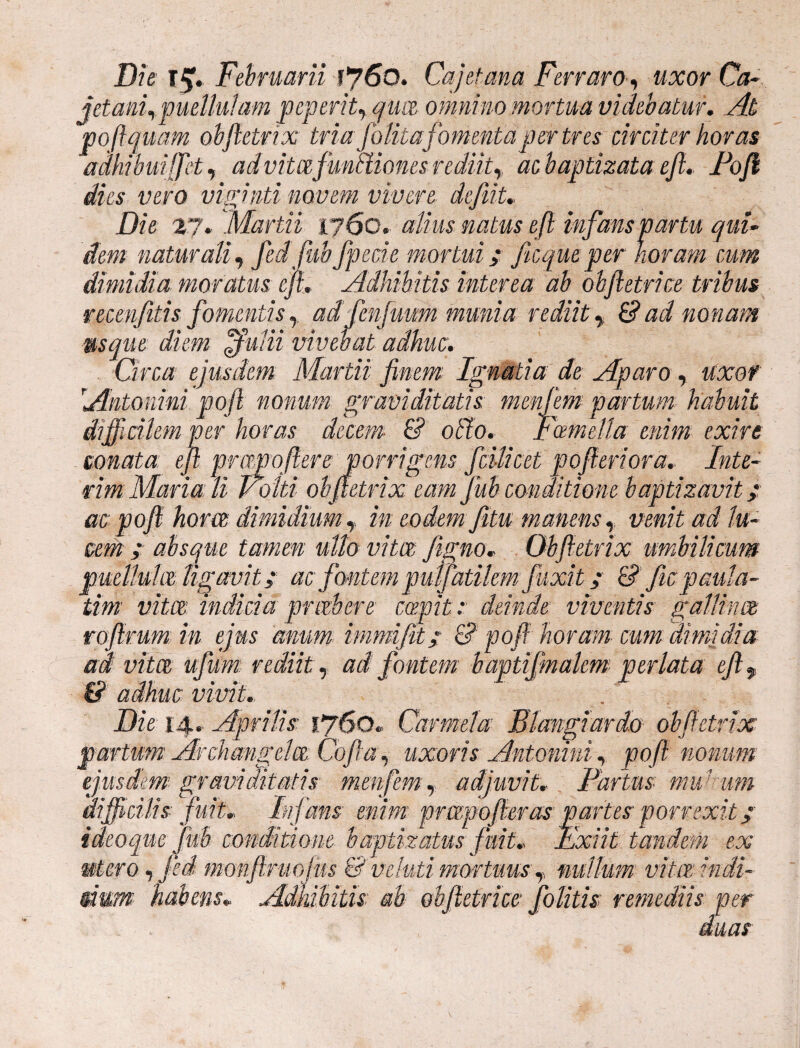 Die 15. Februarii 1760. Cajetana Ferraro, uxor Ca-
jetani, puellulam peperit, quæ omnino mortua videbatur. At
poſtquam obſtetrix tria ſolita fomenta per tres circiter horas
adhibuiſſet, ad vitæ functiones rediit, ac baptizata eſt. Poſt
dies vero viginti novem vivere deſiit.
Die 27. Martii 1760. alius natus eſt infans partu qui-
dem naturali, ſed ſub ſpecie mortui; ſicque per horam cum
dimidia moratus eſt. Adhibitis interea ab obſtetrice tribus
recenſitis fomentis, ad ſenſuum munia rediit, & ad nonam
usque diem Julii vivebat adhuc.
Circa ejusdem Martii finem Ignatia de Aparo, uxor
Antonini poſt nonum graviditatis menſem partum habuit
difficilem per horas decem & octo. Fœmella enim exire
conata eſt præpoſtere porrigens ſcilicet poſteriora. Inte-
rim Maria li Volti obſtetrix eam ſub conditione baptizavit;
ac poſt horæ dimidium, in eodem ſitu manens, venit ad lu-
cem; absque tamen ullo vitæ ſigno. Obſtetrix umbilicum
puellulæ ligavit; ac fontem pulſatilem ſuxit; & ſic paula-
tim vitæ indicia præbere cœpit: deinde viventis gallinæ
roſtrum in ejus anum immiſit; & poſt horam cum dimidia
ad vitæ uſum rediit, ad fontem baptiſmalem perlata eſt,
& adhuc vivit.
Die 14. Aprilis 1760. Carmela Blangiardo obſtetrix
partum Archangelæ Coſta, uxoris Antonini, poſt nonum
ejusdem graviditatis menſem, adjuvit. Partus multum
difficilis fuit. Infans enim præpoſteras partes porrexit;
ideoque ſub conditione baptizatus fuit. Exiit tandem ex
utero, ſed monſtruoſus & veluti mortuus, nullum vitæ indi-
cium habens. Adhibitis ab obſtetrice ſolitis remediis per
duas